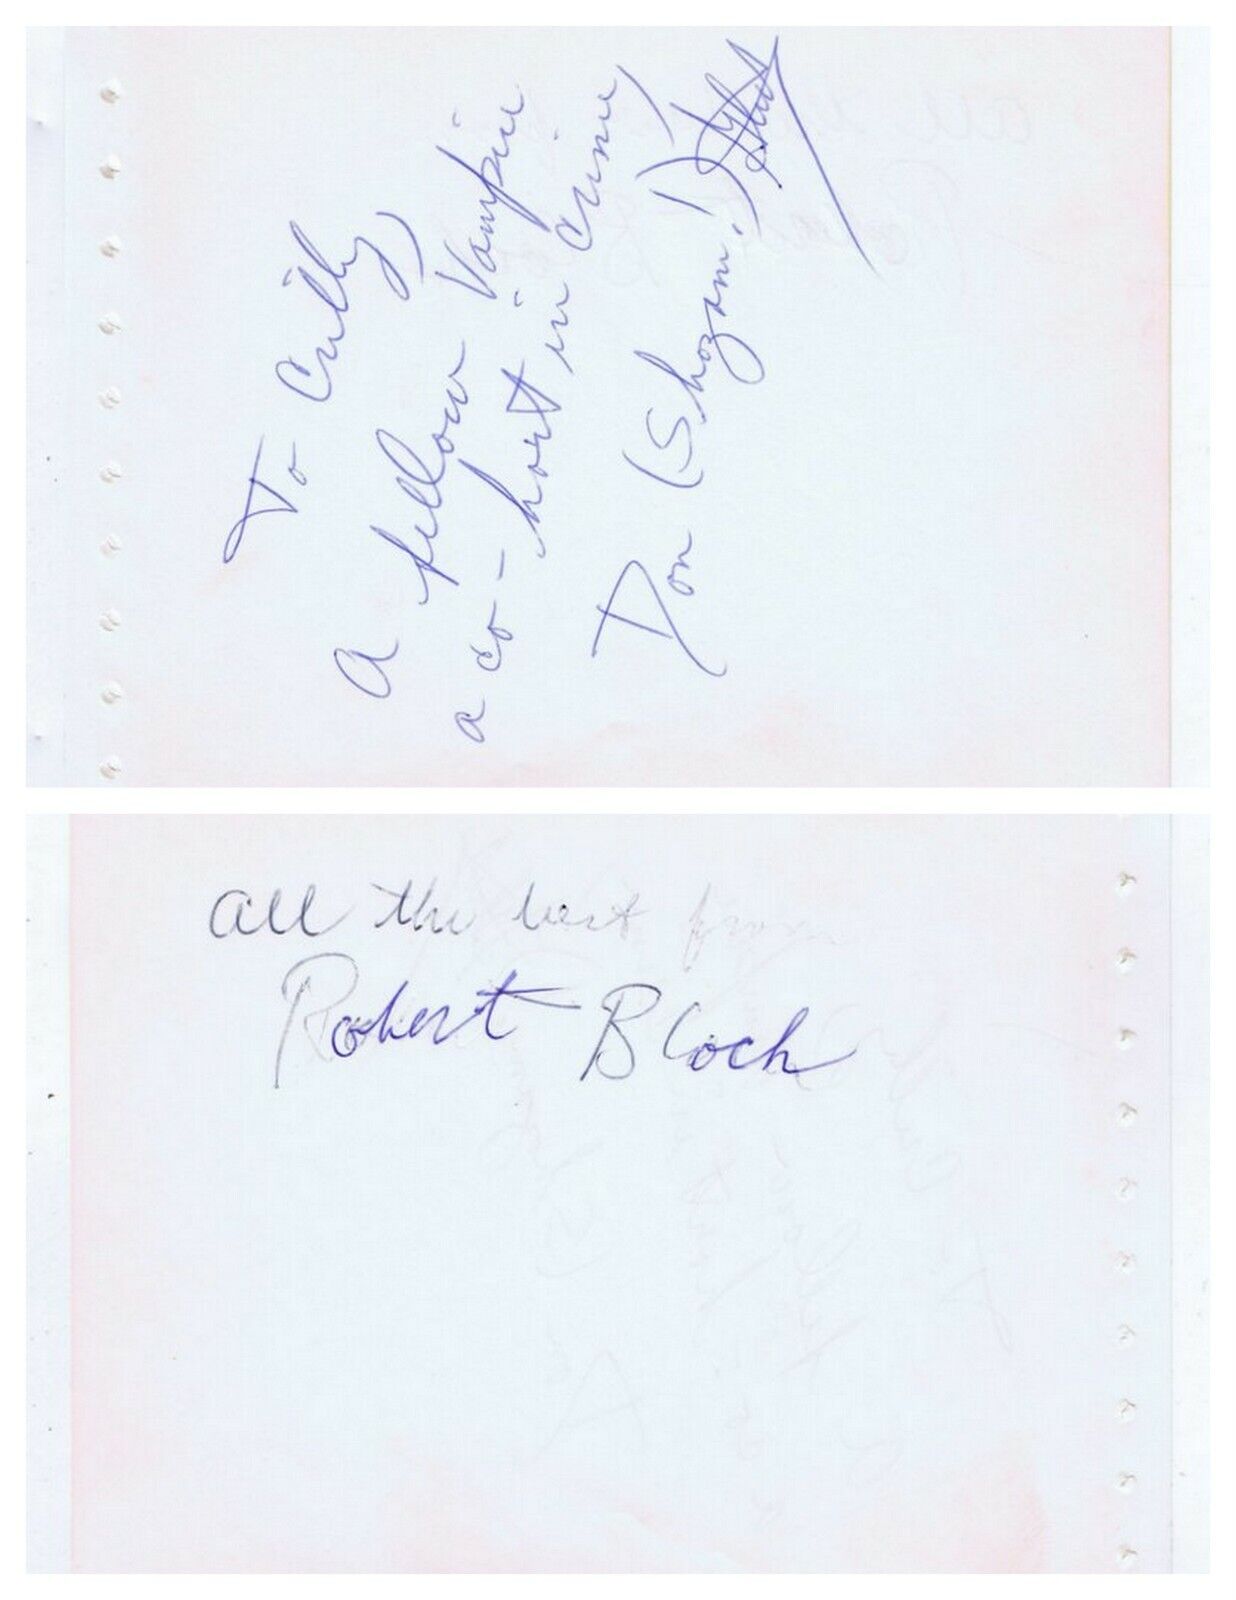 To Crilly,
a fellow Vampire
a co-hort in crime,
Don (Shazam!)
all the best from
Robert Bloch